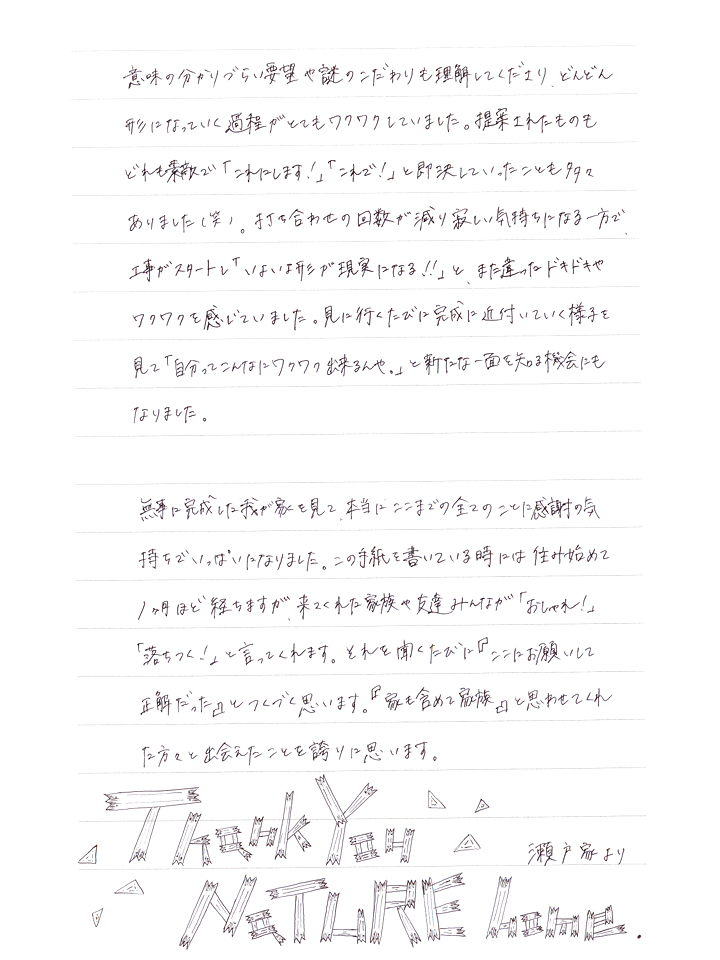 意味の分かりづらい要望や謎のこだわりも理解してくださり、どんどん
形になっていく過程がとてもワクワクしていました。提案されたものも
どれも素敵で「これにします！」「これで！」と即決していったことも多々
ありました（笑）。打ち合わせの回数が減り寂しい気持ちになる一方で、
工事がスタートし「いよいよ形が現実になる!!」と、また違ったドキドキや
ワクワクを感じていました。見に行くたびに完成に近付いていく様子を
見て「自分ってこんなにワクワク出来るんや。」と新たな一面を知る機会にも
なりました。
無事に完成した我が家を見て、本当にここまでの全てのことに感謝の気
持ちでいっぱいになりました。この手紙を書いている時には住み始めて
1ヶ月ほど経ちますが、来てくれた家族や友達みんなが「おしゃれ！」
「落ちつく！」と言ってくれます。それを聞くたびに『ここにお願いして
正解だった』とつくづく思います。『家も含めて家族。』と思わせてくれ
た方々と出会えたことを誇りに思います。
Thank You
瀬戸家より
NaTURE home.